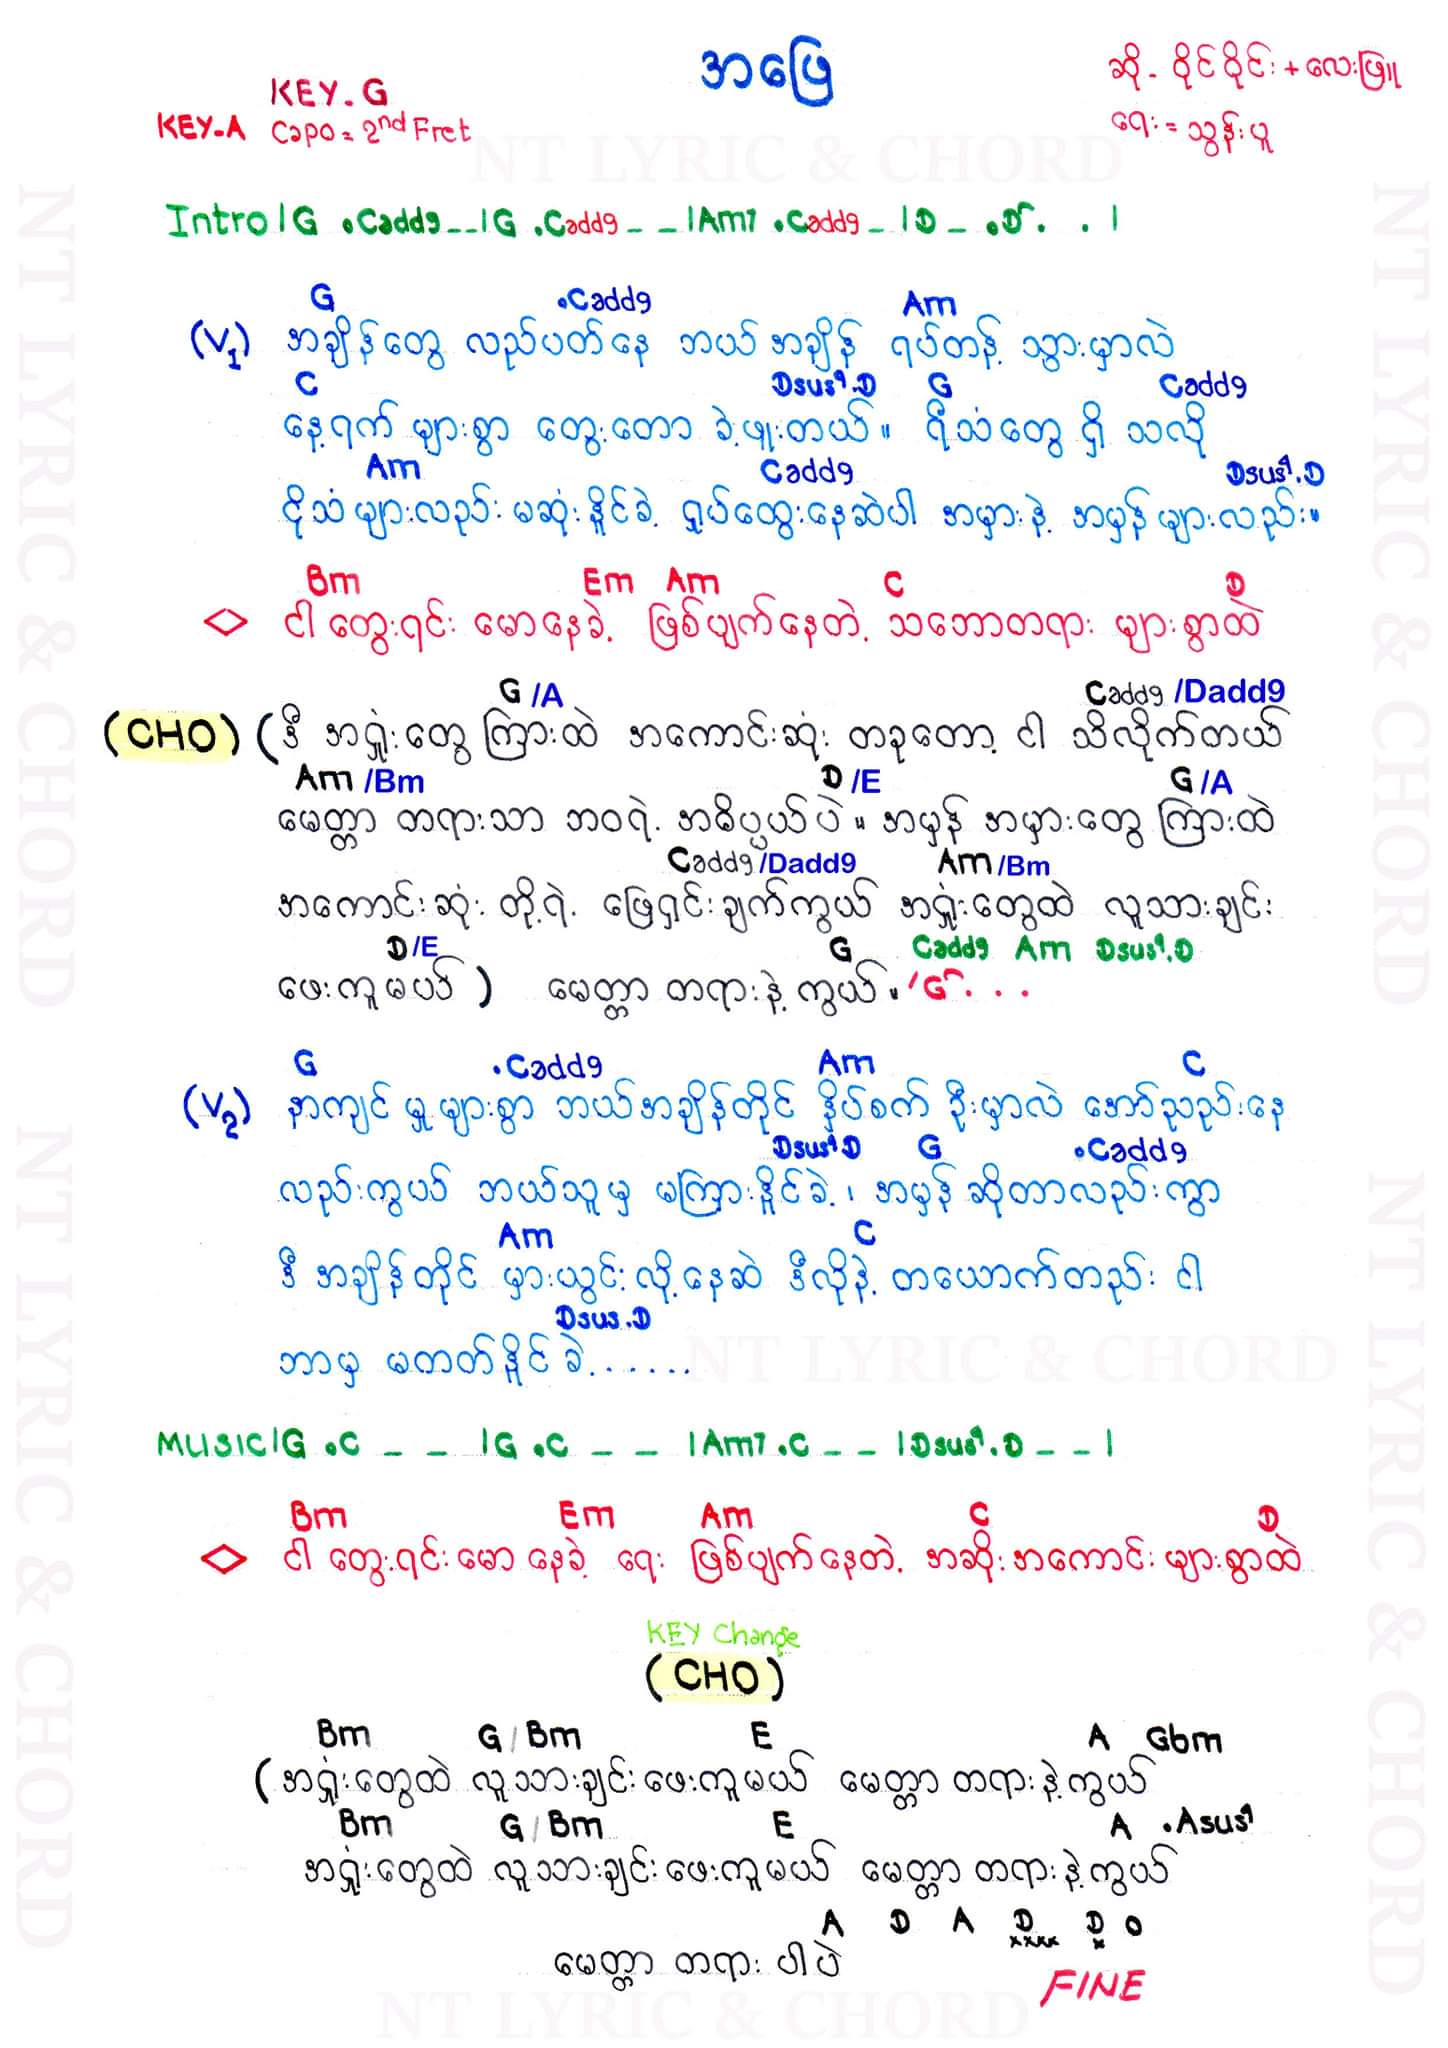 အဖြေ
KEY-G
KEY-A Capo = 2nd Fret
ဆို - ဝိုင်ဝိုင်း + လေးဖြူ
ရေး = သွန်းပူ
NT LYRIC & CHORD
Intro | G .Cadd9 _ _ | G .Cadd9 _ _ | Am7 .Cadd9 _ | D _ .D . . |
G .Cadd9 Am
(V1) အချိန်တွေ လည်ပတ်နေ ဘယ်အချိန် ရပ်တန့် သွားမှာလဲ
C Dsus4.D G Cadd9
နေ့ရက် များစွာ တွေးတော ခဲ့ဖူးတယ်။ ရီသံတွေ ရှိ သလို
Am Cadd9 Dsus4.D
ငိုသံများလည်း မဆုံးနိူင်ခဲ့ ရှုပ်ထွေးနေဆဲပါ အမှားနဲ့ အမှန်များလည်း။
Bm Em Am C D
ငါတွေးရင်း မောနေခဲ့ ဖြစ်ပျက်နေတဲ့ သဘောတရား များစွာထဲ
G/A Cadd9/Dadd9
(CHO) (ဒီ အရှုံးတွေကြားထဲ အကောင်းဆုံး တခုတော့ ငါ သိလိုက်တယ်
Am/Bm D/E G/A
မေတ္တာ တရားသာ ဘဝရဲ့ အဓိပ္ပယ်ပဲ။ အမှန် အမှားတွေကြားထဲ
Cadd9/Dadd9 Am/Bm
အကောင်းဆုံး တို့ရဲ့ ဖြေရှင်းချက်ကွယ် အရှုံးတွေထဲ လူသားချင်း
D/E G Cadd9 Am Dsus4.D
ဖေးကူမယ်) မေတ္တာ တရားနဲ့ ကွယ်။ ' G . . .
G .Cadd9 Am C
(V2) နာကျင် မှုများစွာ ဘယ်အချိန်တိုင် နှိပ်စက် ဦးမှာလဲ အော်ညည်းနေ
Dsus4.D G .Cadd9
လည်းကွယ် ဘယ်သူမှ မကြားနိူင်ခဲ့၊ အမှန်ဆိုတာလည်းကွာ
Am C
ဒီအချိန်တိုင် မှားယွင်းလို့နေဆဲ ဒီလိုနဲ့ တယောက်တည်း ငါ
Dsus.D
ဘာမှ မတတ်နိူင်ခဲ့......
NT LYRIC & CHORD
MUSIC | G .C _ _ | G .C _ _ | Am7 .C _ _ | Dsus4.D _ _ |
Bm Em Am C D
ငါတွေးရင်းမောနေခဲ့ ရေး ဖြစ်ပျက်နေတဲ့ အဆိုးအကောင်းများစွာထဲ
KEY Change
(CHO)
Bm G/Bm E A Gbm
(အရှုံးတွေထဲ လူသားချင်းဖေးကူမယ် မေတ္တာ တရားနဲ့ကွယ်
Bm G/Bm E A .Asus4
အရှုံးတွေထဲ လူသားချင်းဖေးကူမယ် မေတ္တာ တရားနဲ့ကွယ်
A D A D D o
xxxx x
မေတ္တာ တရား ပါပဲ
FINE
NT LYRIC & CHORD
NT LYRIC & CHORD
NT LYRIC & CHORD
NT LYRIC & CHORD
NT LYRIC & CHORD